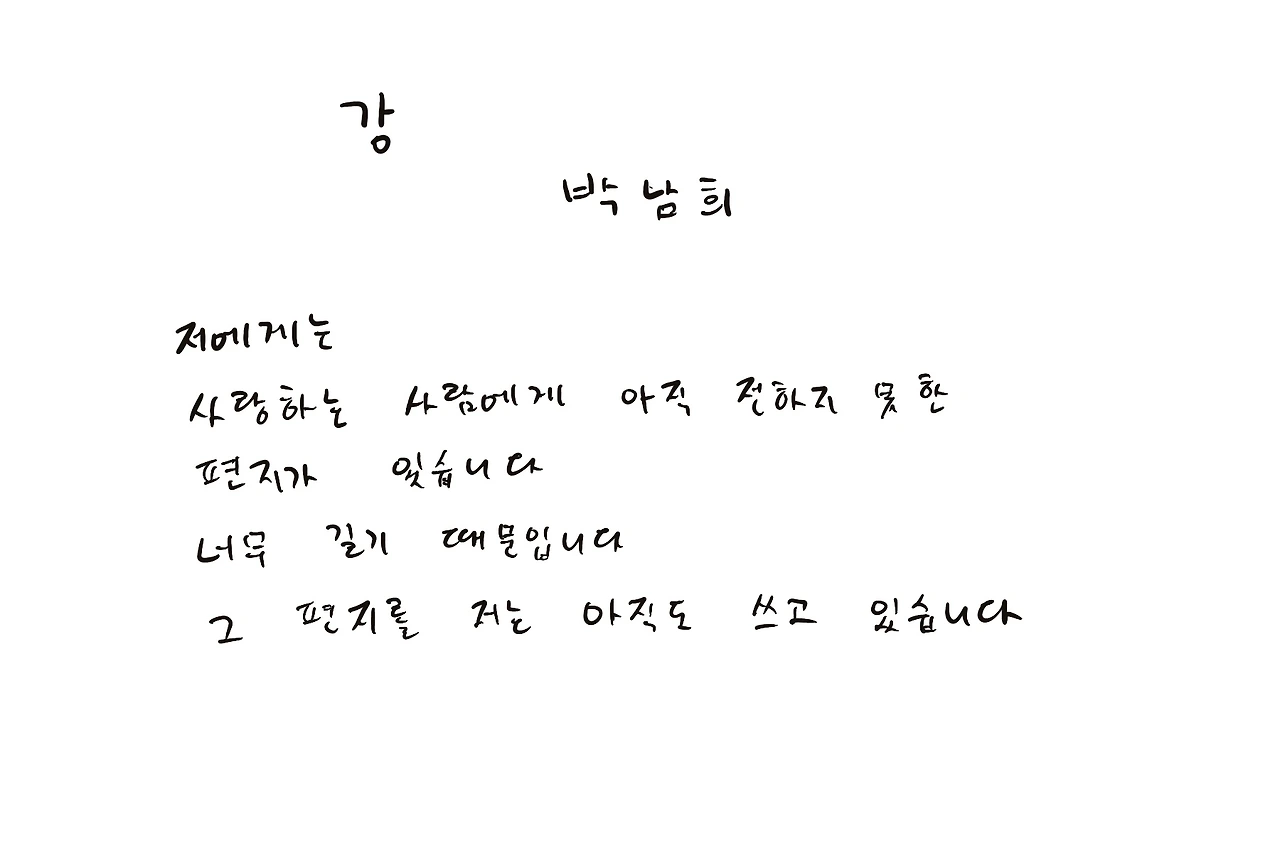 강
박남희
저에게는
사랑하는 사람에게 아직 전하지 못한
편지가 있습니다
너무 길기 때문입니다
그 편지를 저는 아직도 쓰고 있습니다